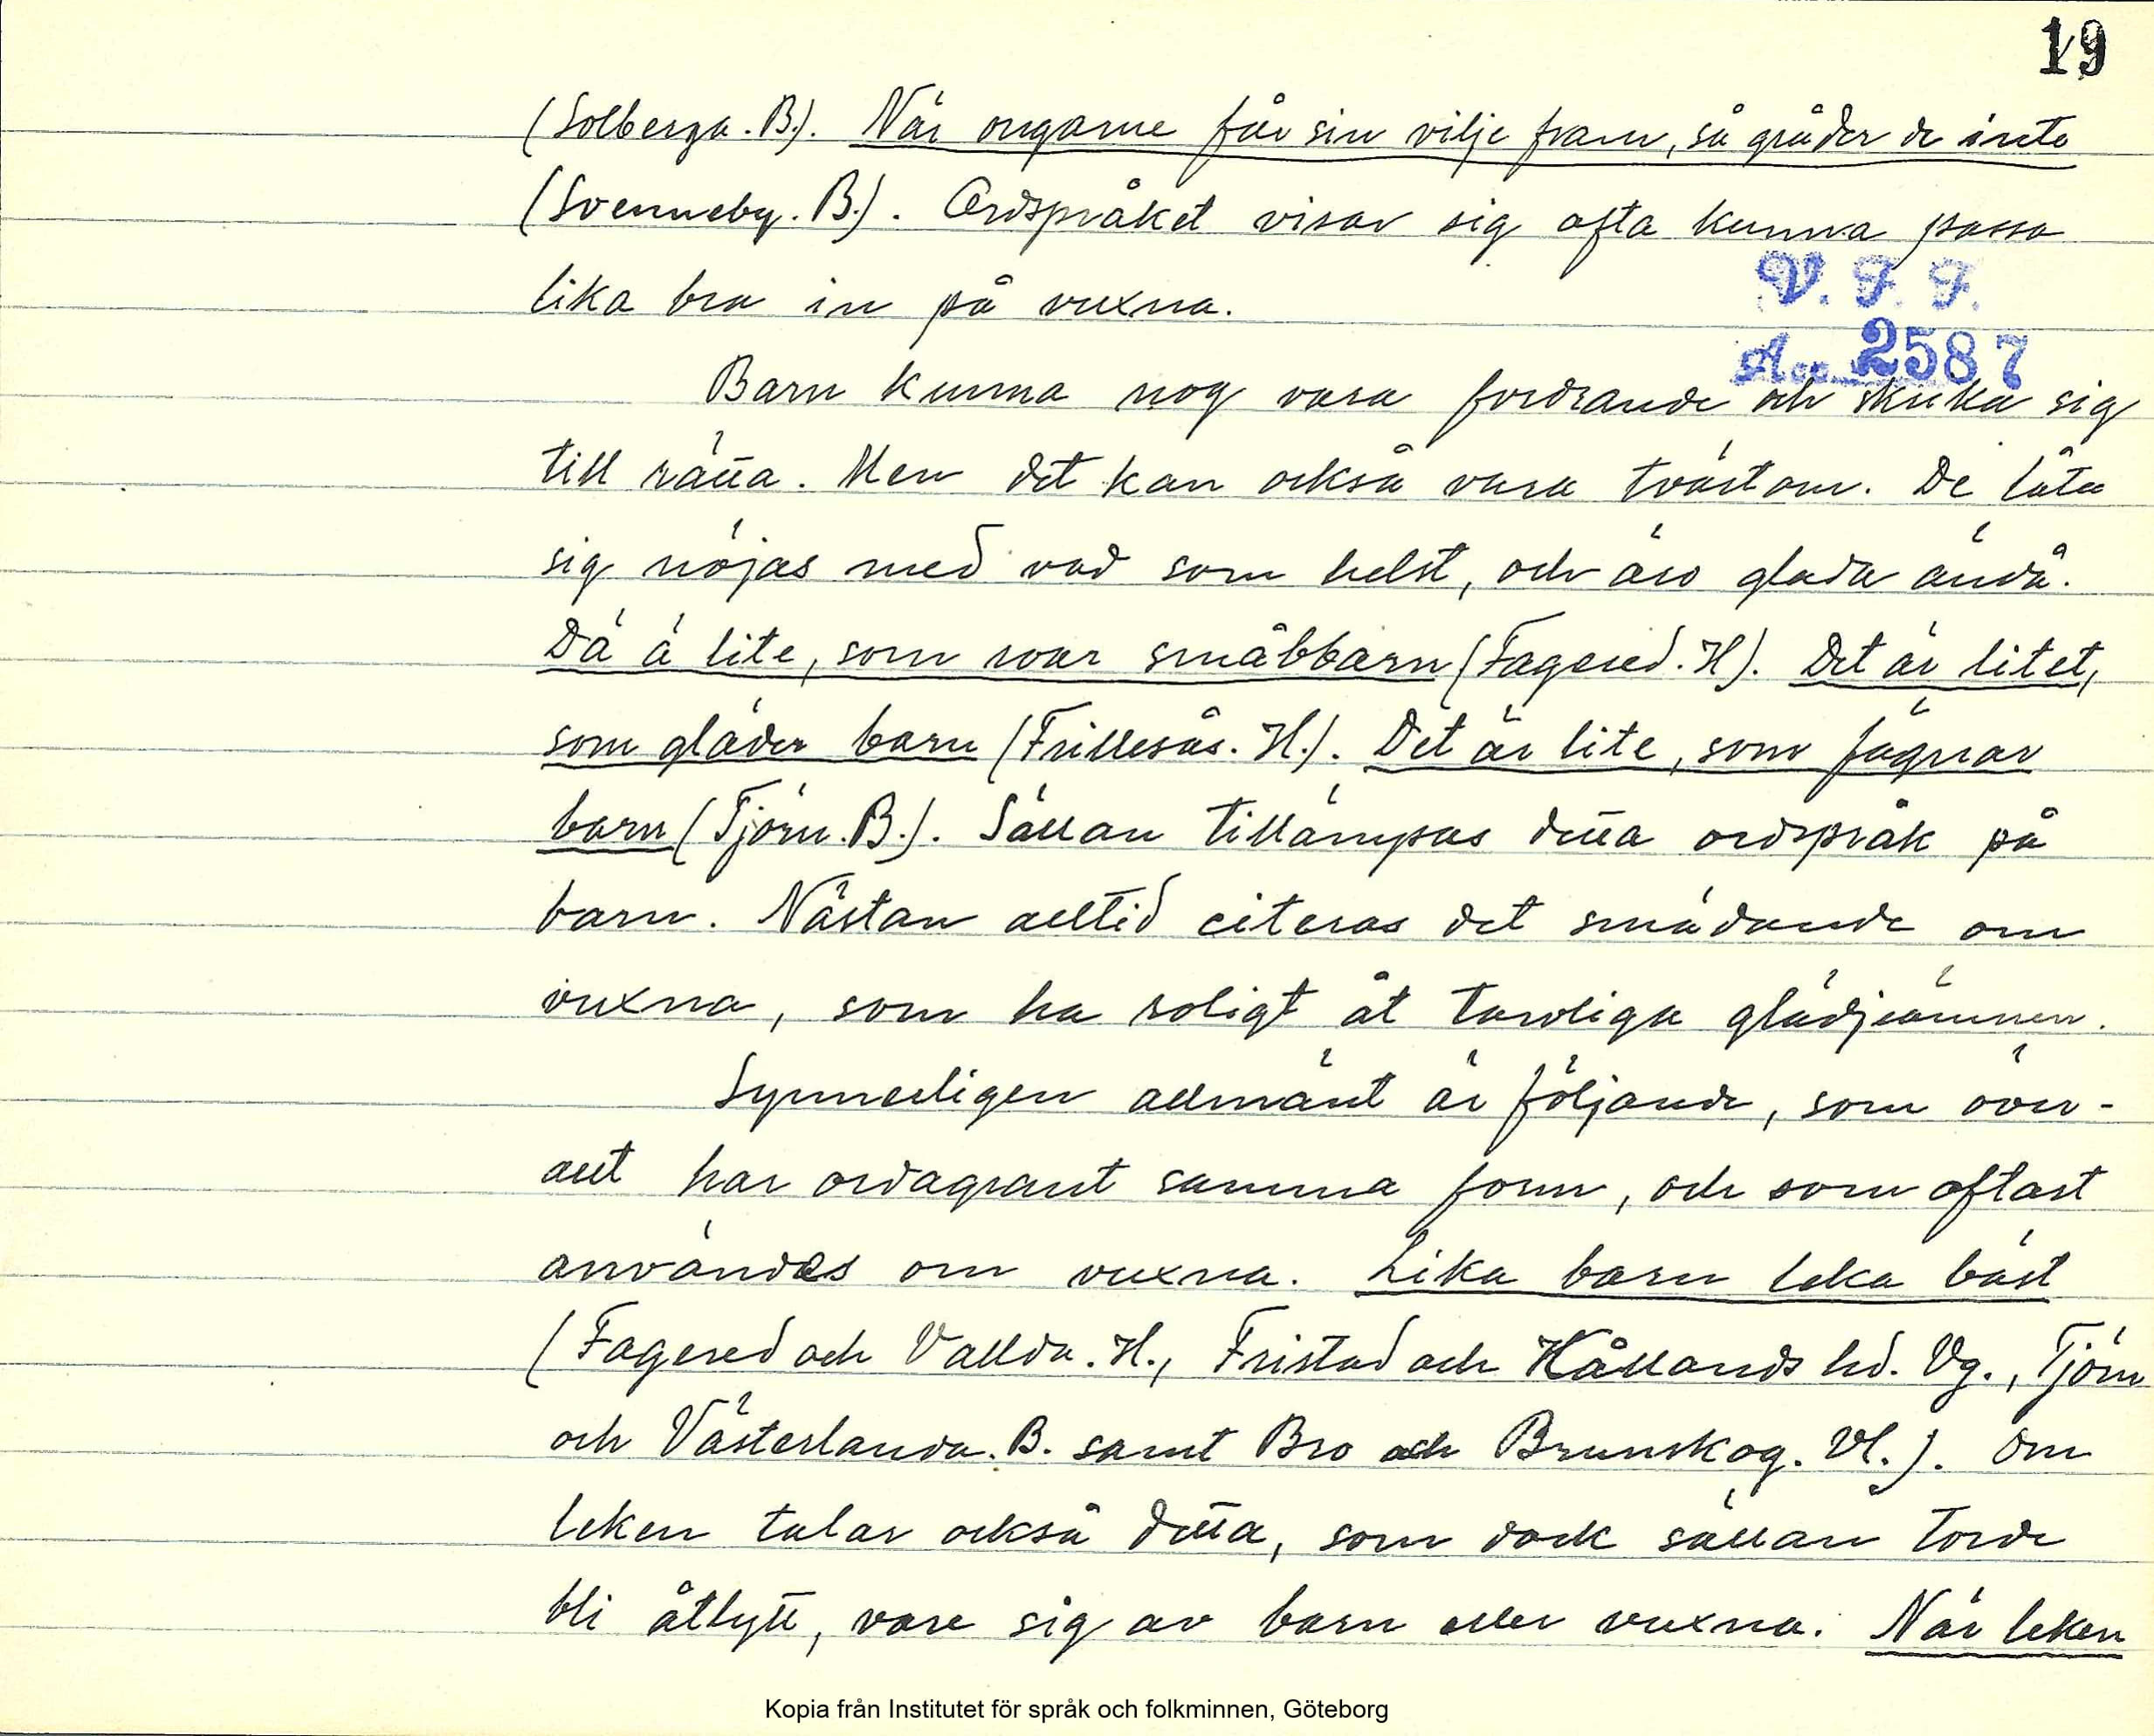 19
(Solberga. B.). När ongarne får sin vilje fram, så gråder de inte
(Svenneby. B.). Ordspråket visar sig ofta kunna passa
lika bra in på vuxna.
V. F. F.
Acc. 2587
Barn kunna nog vara fordrande och skrika sig
till rätta. Men det kan också vara tvärtom. De låta
sig nöjas med vad som helst, och äro glada ändå.
Dä ä lite, som roar småbbarn (Fagered. H). Det är litet,
som gläder barn (Frillesås. H.). Det är lite, som fägnar
barn (Tjörn. B.). Sällan tillämpas detta ordspråk på
barn. Nästan alltid citeras det smädande om
vuxna, som ha roligt åt tarvliga glädjeämnen.
Synnerligen allmänt är följande, som över-
allt har ordagrant samma form, och som oftast
användes om vuxna. Lika barn leka bäst
(Fagered och Vallda. H., Fristad och Kållands hd. Vg., Tjörn
och Västerlanda. B. samt Bro och Brunskog. Vl.). Om
leken talar också detta, som dock sällan torde
bli åtlytt, vare sig av barn eller vuxna. När leken
Kopia från Institutet för språk och folkminnen, Göteborg